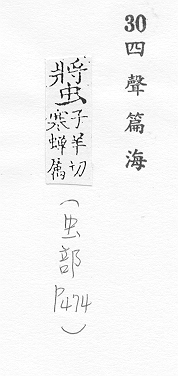 30四聲篇海
螿
子羊切
寒蟬属
(虫部P474)